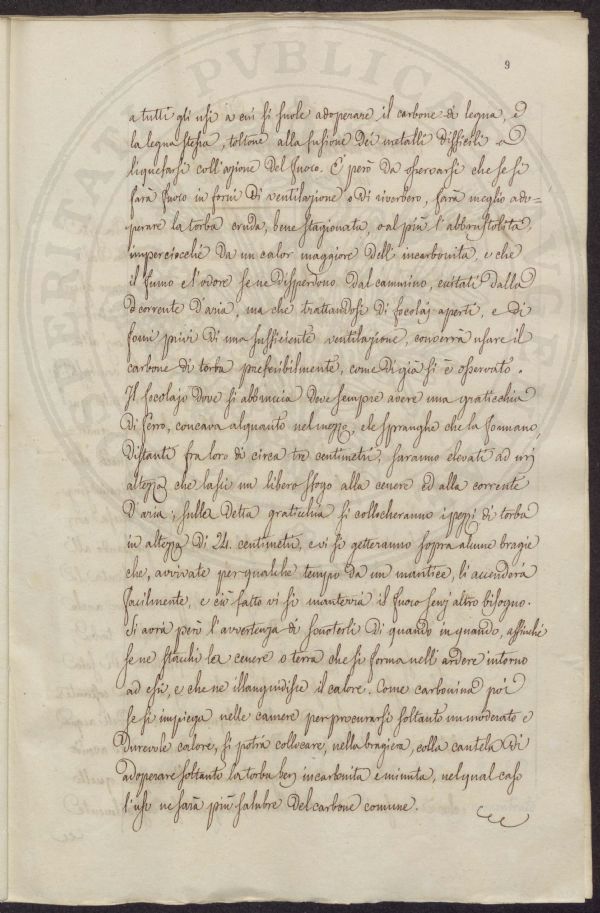 9
a tutti gli usi a cui si suole adoperare il carbone di legna, e
la legna stessa, toltone alla fusione dei metalli difficili a
liquefarsi coll'azione del fuoco. E' però da osservarsi che se si
farà fuoco in forni di ventilazione o di riverbero, sarà meglio ado-
perare la torba cruda, bene stagionata, o al più l'abbrustolita,
imperciocchè da un calor maggiore dell'incarbonita, e che
il fumo e l'odore se ne disperdono dal cammino, eccitati dalla
corrente d'aria, ma che trattandosi di focolaj aperti, e di
forni privi di una sufficiente ventilazione, converrà usare il
carbone di torba preferibilmente, come di già si è osservato.
Il focolajo dove si abbrucia deve sempre avere una graticchia
di ferro, concava alquanto nel mezzo, e le spranghe che la formano,
distanti fra loro di circa tre centimetri, saranno elevati ad un'
altezza che lasci un libero sfogo alla cenere ed alla corrente
d'aria; sulla detta graticchia si collocheranno i pezzi di torba
in altezza di 24. centimetri, e vi si getteranno sopra alcune bragie
che, avvivate per qualche tempo da un mantice, li accenderà
facilmente, e ciò fatto vi si manterrà il fuoco senz'altro bisogno.
Si avrà però l'avvertenza di scuoterli di quando in quando, affinchè
se ne stacchi la cenere o terra che si forma nell'ardere intorno
ad essi, e che ne illanguidisce il calore. Come carbonina poi
se si impiega nelle camere per procurarsi soltanto un moderato e
durevole calore, si potrà collocare, nella bragiera, colla cautela di
adoperare soltanto la torba ben incarbonita e minuta, nel qual caso
l'uso ne sarà più salubre del carbone comune.
PUBLICAE